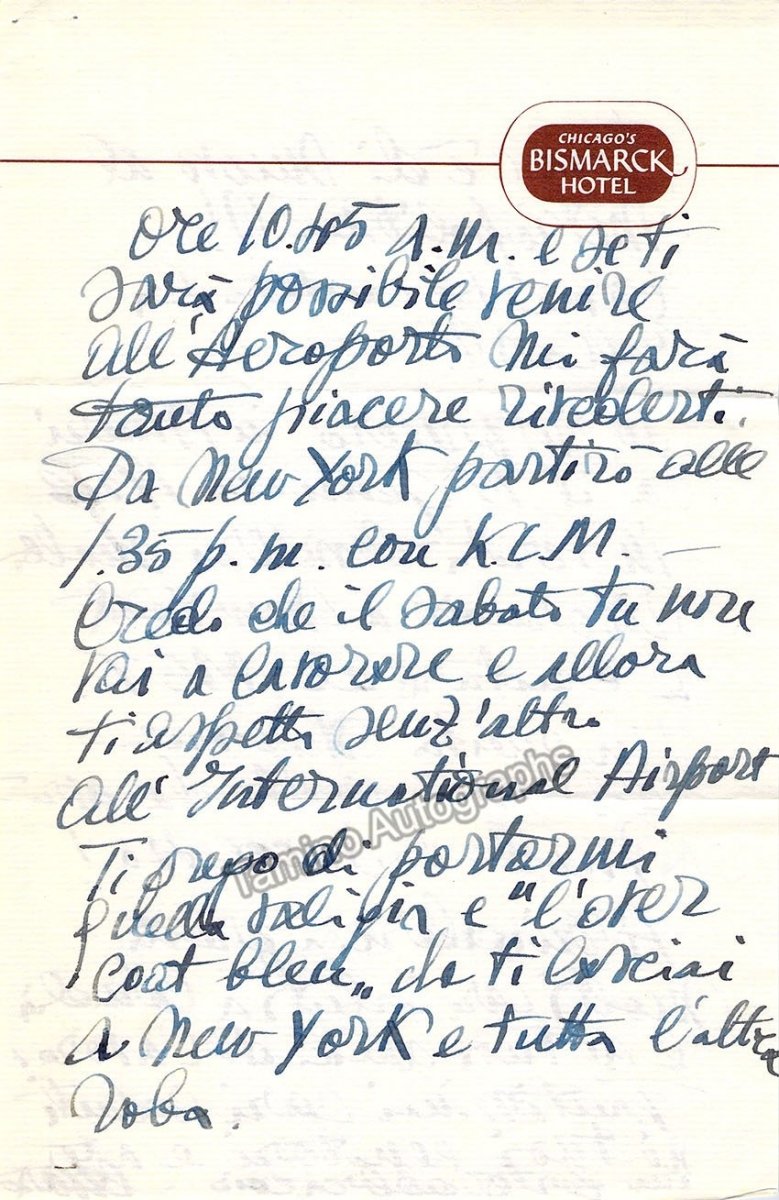 CHICAGO'S
BISMARCK
HOTEL
Ore 10.45 a.m. e se ti
sarà possibile venire
all'Aeroporto mi farà
tanto piacere rivederti.
Da New York partirò alle
1.35 p.m. con K.L.M. —
Credo che il sabato tu non
vai a lavorare e allora
ti aspetto senz'altro
all'International Airport
Ti prego di portarmi
quella valigia e "l'over
coat bleu„ che ti lasciai
a New York e tutta l'altra
roba.
Tamino Autographs